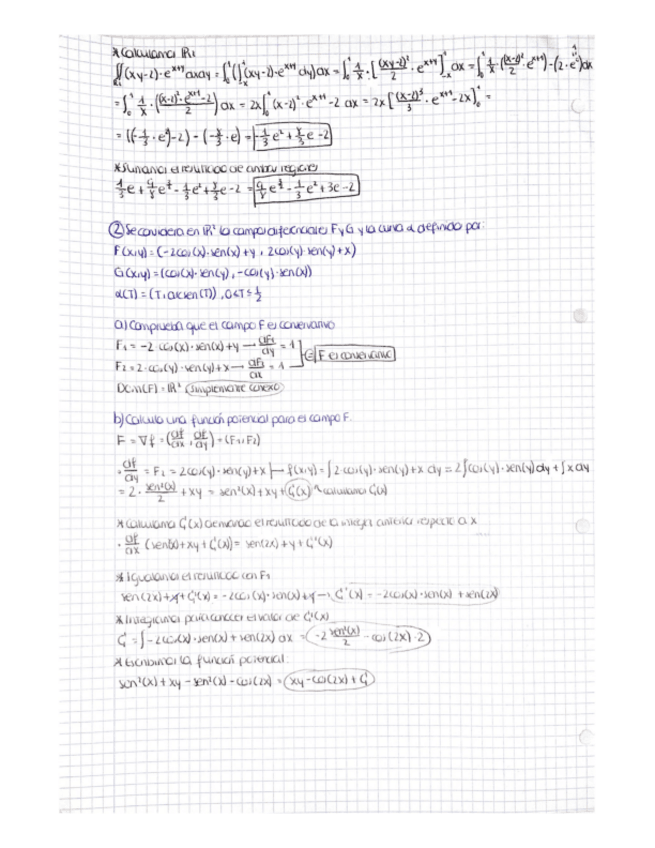 * Calculamos R₂
∬(xy-2)·e^(x+y) dxdy = ∫₀¹(∫₋ₓ¹(xy-2)·e^(x+y) dy)dx = ∫₀¹ 1/x·[(xy-2)²/2·e^(x+y)]₋ₓ¹ dx = ∫₀¹ 1/x·((x-2)²/2·e^(x+1))-(2·e⁰)dx
= ∫₀¹ 1/x·((x-2)²·e^(x+1)-2)/2) dx = 2x∫₀¹(x-2)²·e^(x+1)-2 dx = 2x[(x-2)³/3·e^(x+1)-2x]₀¹ =
* Sumamos el resultado de ambas regiones
② Se considera en R² los campos diferenciales F y G y la curva α definido por:
F(x,y) = (-2cos(x)·sen(x)+y, 2cos(y)·sen(y)+x)
G(x,y) = (cos(x)·sen(y), -cos(y)·sen(x))
α(T) = (T, arcsen(T)), 0≤T≤1/2
a) Comprueba que el campo F es conservativo
F₁ = -2·cos(x)·sen(x)+y → dF₁/dy = 1
F₂ = 2·cos(y)·sen(y)+x → dF₂/dx = 1 F es conservativo
Dom(F) = R² (simplemente conexo)
b) Calcula una función potencial para el campo F.
F = ∇f = (df/dx, df/dy) = (F₁, F₂)
· df/dy = F₂ = 2cos(y)·sen(y)+x → f(x,y) = ∫2·cos(y)·sen(y)+x dy = 2∫cos(y)·sen(y)dy + ∫x dy
= 2·sen²(y)/2 + xy = sen²(x)+xy+G(x) → calculamos G(x)
* Calculamos G(x) derivando el resultado de la integral anterior respecto a x
· df/dx (sen²(x)+xy+G(x)) = sen(2x)+y+G'(x)
* Igualamos el resultado con F₁
sen(2x)+y+G'(x) = -2cos(x)·sen(x)+y → G'(x) = -2cos(x)·sen(x)+sen(2x)
* Integramos para conocer el valor de G(x)
G = ∫-2cos(x)·sen(x)+sen(2x) dx = (-2 sen²(x)/2 - cos(2x)·2)
* Escribimos la función potencial:
sen²(x)+xy-sen²(x)-cos(2x) = (xy-cos(2x)+G)